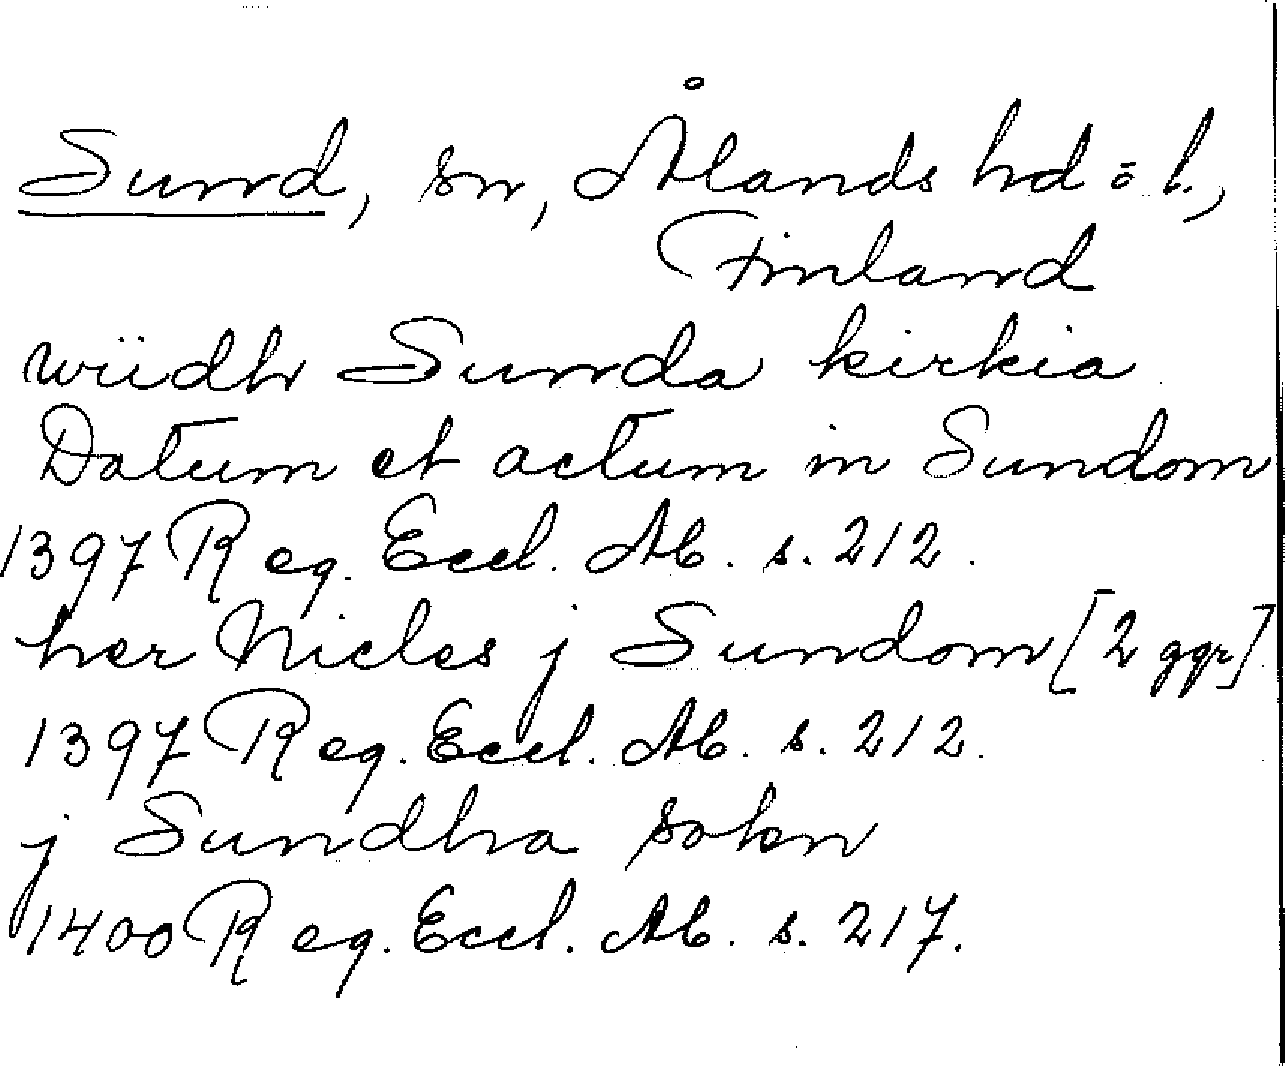 Sund, sn, Ålands hd o. l.,
Finland
wiidh Sunda kirkia
Datum et actum in Sundom
1397 Reg. Eccl. Ab. s. 212.
her Nicles j Sundom [2 ggr]
1397 Reg. Eccl. Ab. s. 212.
j Sundha sokn
1400 Reg. Eccl. Ab. s. 217.